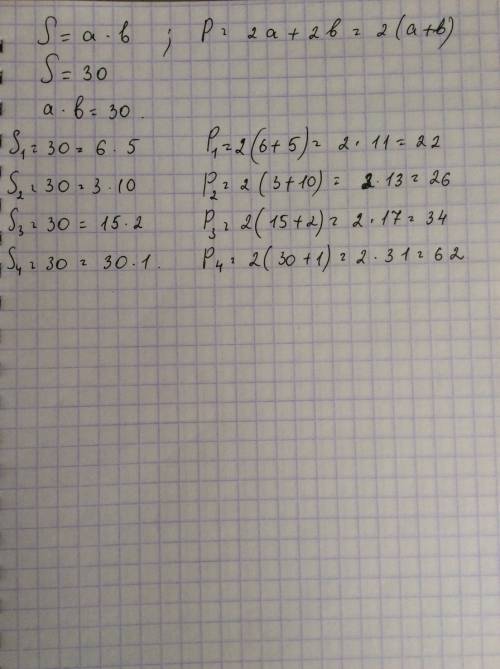 S = a · b ; P = 2a + 2b = 2(a+b)
S = 30
a · b = 30.
S₁ = 30 = 6 · 5 P₁ = 2(6+5) = 2 · 11 = 22
S₂ = 30 = 3 · 10 P₂ = 2(3+10) = 2 · 13 = 26
S₃ = 30 = 15 · 2 P₃ = 2(15+2) = 2 · 17 = 34
S₄ = 30 = 30 · 1. P₄ = 2(30+1) = 2 · 31 = 62